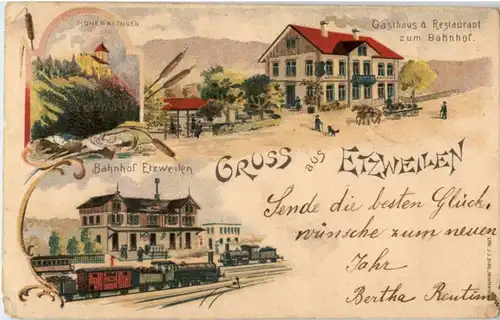 HOHENKLINGEN
Gasthaus & Restaurant
zum Bahnhof.
Bahnhof Etzweilen
GRUSS aus ETZWEILEN
Sende die besten Glück,
wünsche zum neuen
Jahr
Bertha Reutim